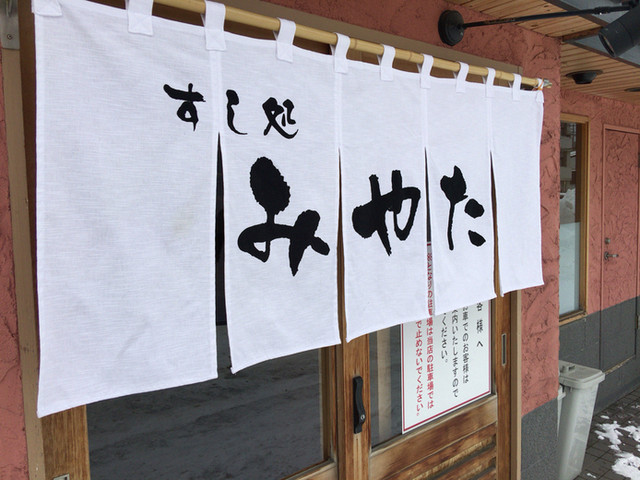 すし処
みやた
客様へ
お車でのお客様は
案内いたしますので
ください。
となりの駐車場は当店の駐車場では
で止めないでください。